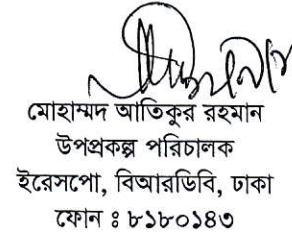 মোহাম্মদ আতিকুর রহমান
উপপ্রকল্প পরিচালক
ইরেসপো, বিআরডিবি, ঢাকা
ফোন ঃ ৮১৮০১৪৩